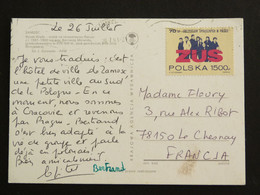 Le 26 Juillet
Je vous traduis : c'est
l'hôtel de ville de Zamosc
une petite ville au sud
de la Pologne - En ce
moment, nous sommes
à Cracovie et revenons
par Prague - Bertrand
s'est bien adapté à la
vie de groupe et parle
déjà en polonais !
Bien amicalement
Bertrand
ZUS
POLSKA 1500
Madame Fleury
3, rue Alex Ribot
78150 Le Chesnay
FRANCJA